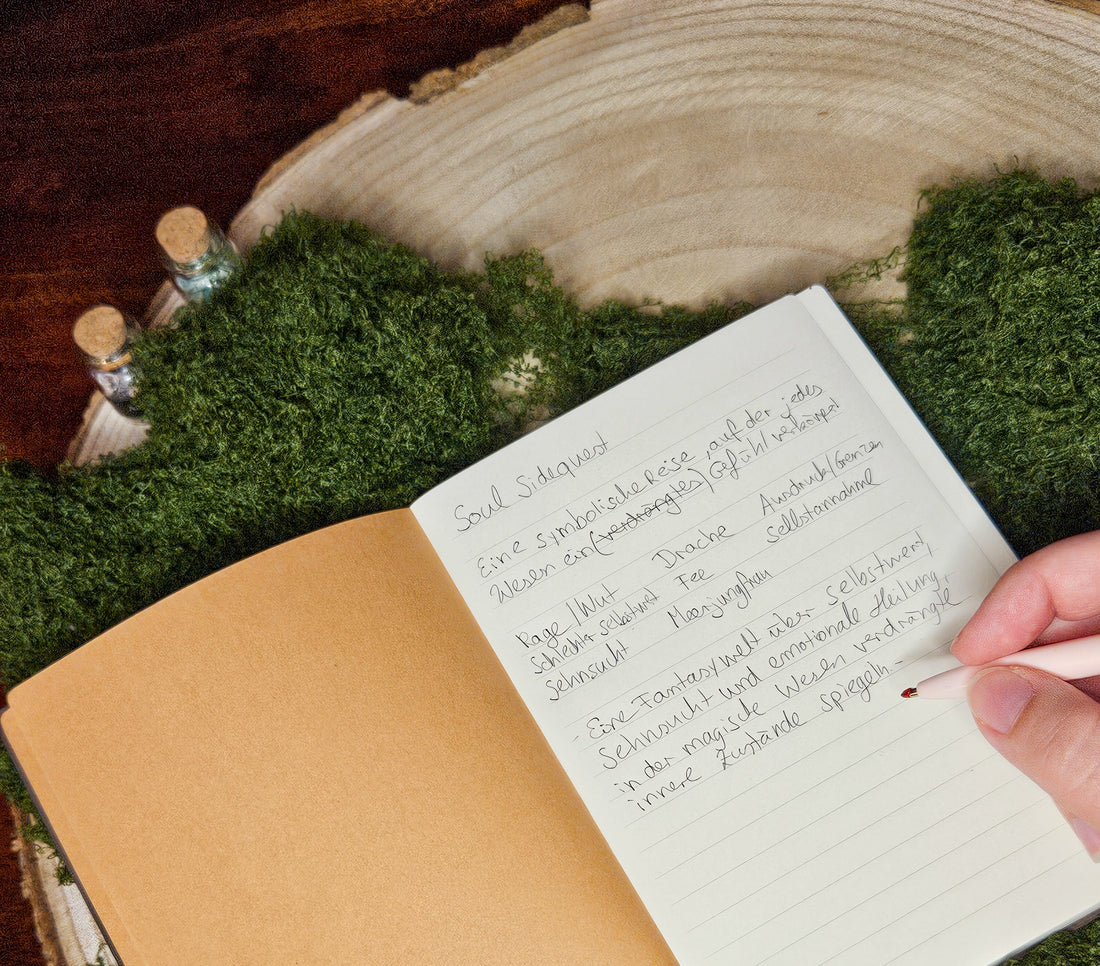 Soul Sidequest
Eine symbolische Reise, auf der jedes
Wesen ein (verdrängtes) Gefühl verkörpert
Rage/Wut Drache Ausdruck/Grenzen
Schlechter selbstwert Fee selbstannahme
Sehnsucht Meerjungfrau
- Eine Fantasywelt über selbstwert,
Sehnsucht und emotionale Heilung,
in der magische Wesen verdrängte
innere Zustände spiegeln.-